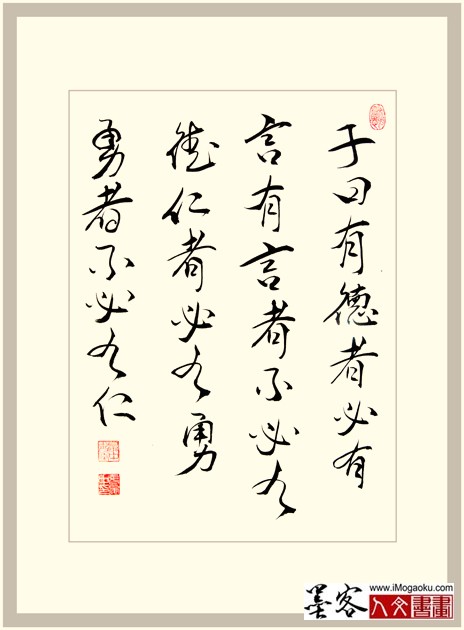 子曰有德者必有
言有言者不必有
德仁者必有勇
勇者不必有仁
www.iMogaoku.com
墨客
人文書畫